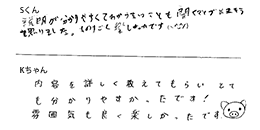 Sくん
説明が分かりやすくてわからないことも聞くことができて
思いました。ものすごく楽しかったです
Kちゃん
内容を詳しく教えてもらい とて
も分かりやすかったです!
雰囲気も良く楽しかったです